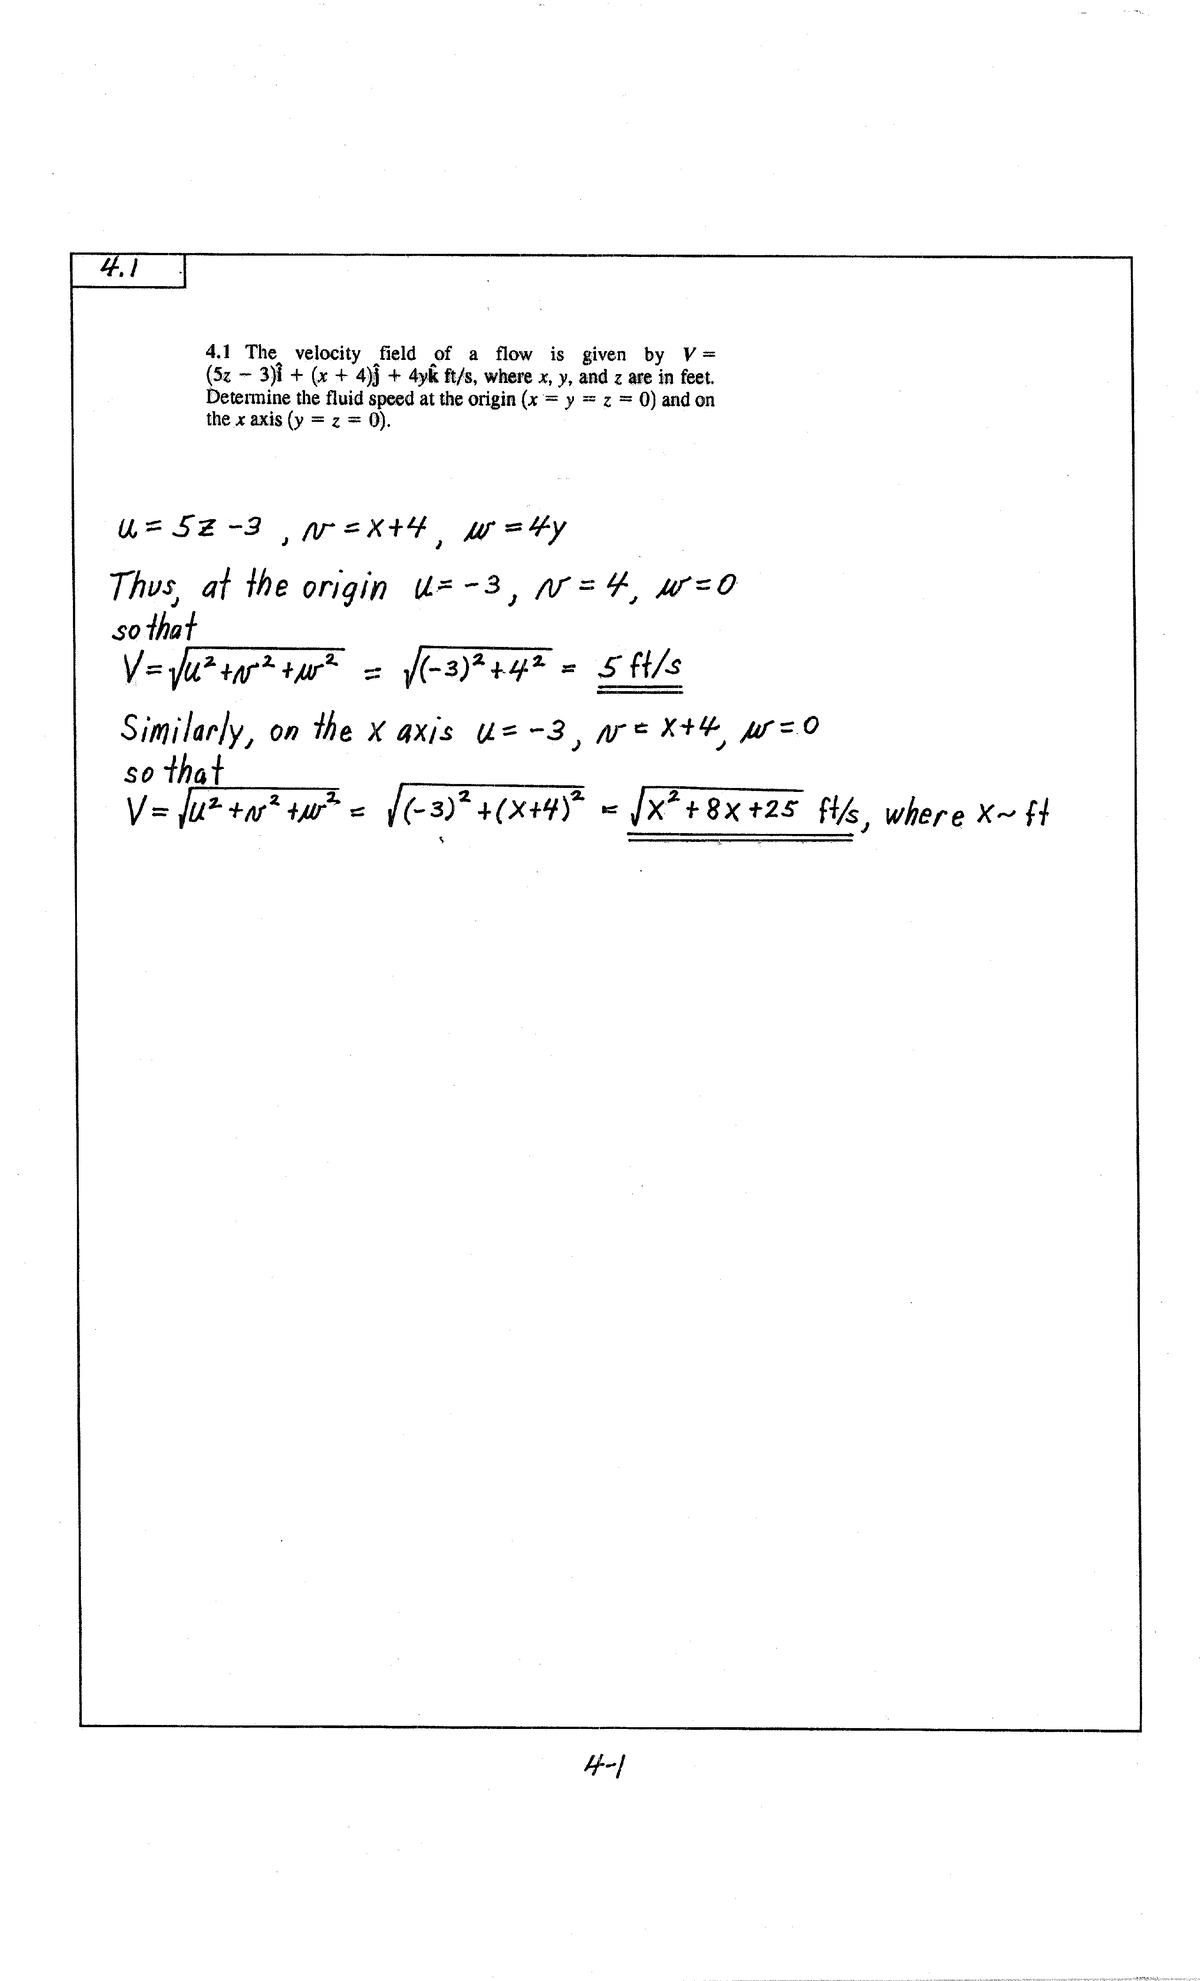 4.1
4.1 The velocity field of a flow is given by V =
(5z − 3)î + (x + 4)ĵ + 4yk̂ ft/s, where x, y, and z are in feet.
Determine the fluid speed at the origin (x = y = z = 0) and on
the x axis (y = z = 0).
u = 5z −3 , v = x+4 , w = 4y
Thus, at the origin u = −3 , v = 4, w = 0
so that
V = √(u² + v² + w²) = √((−3)² + 4²) = 5 ft/s
Similarly, on the x axis u = −3 , v = x+4, w = 0
so that
V = √(u² + v² + w²) = √((−3)² + (x+4)²) = √(x² + 8x + 25) ft/s, where x ~ ft
4-1